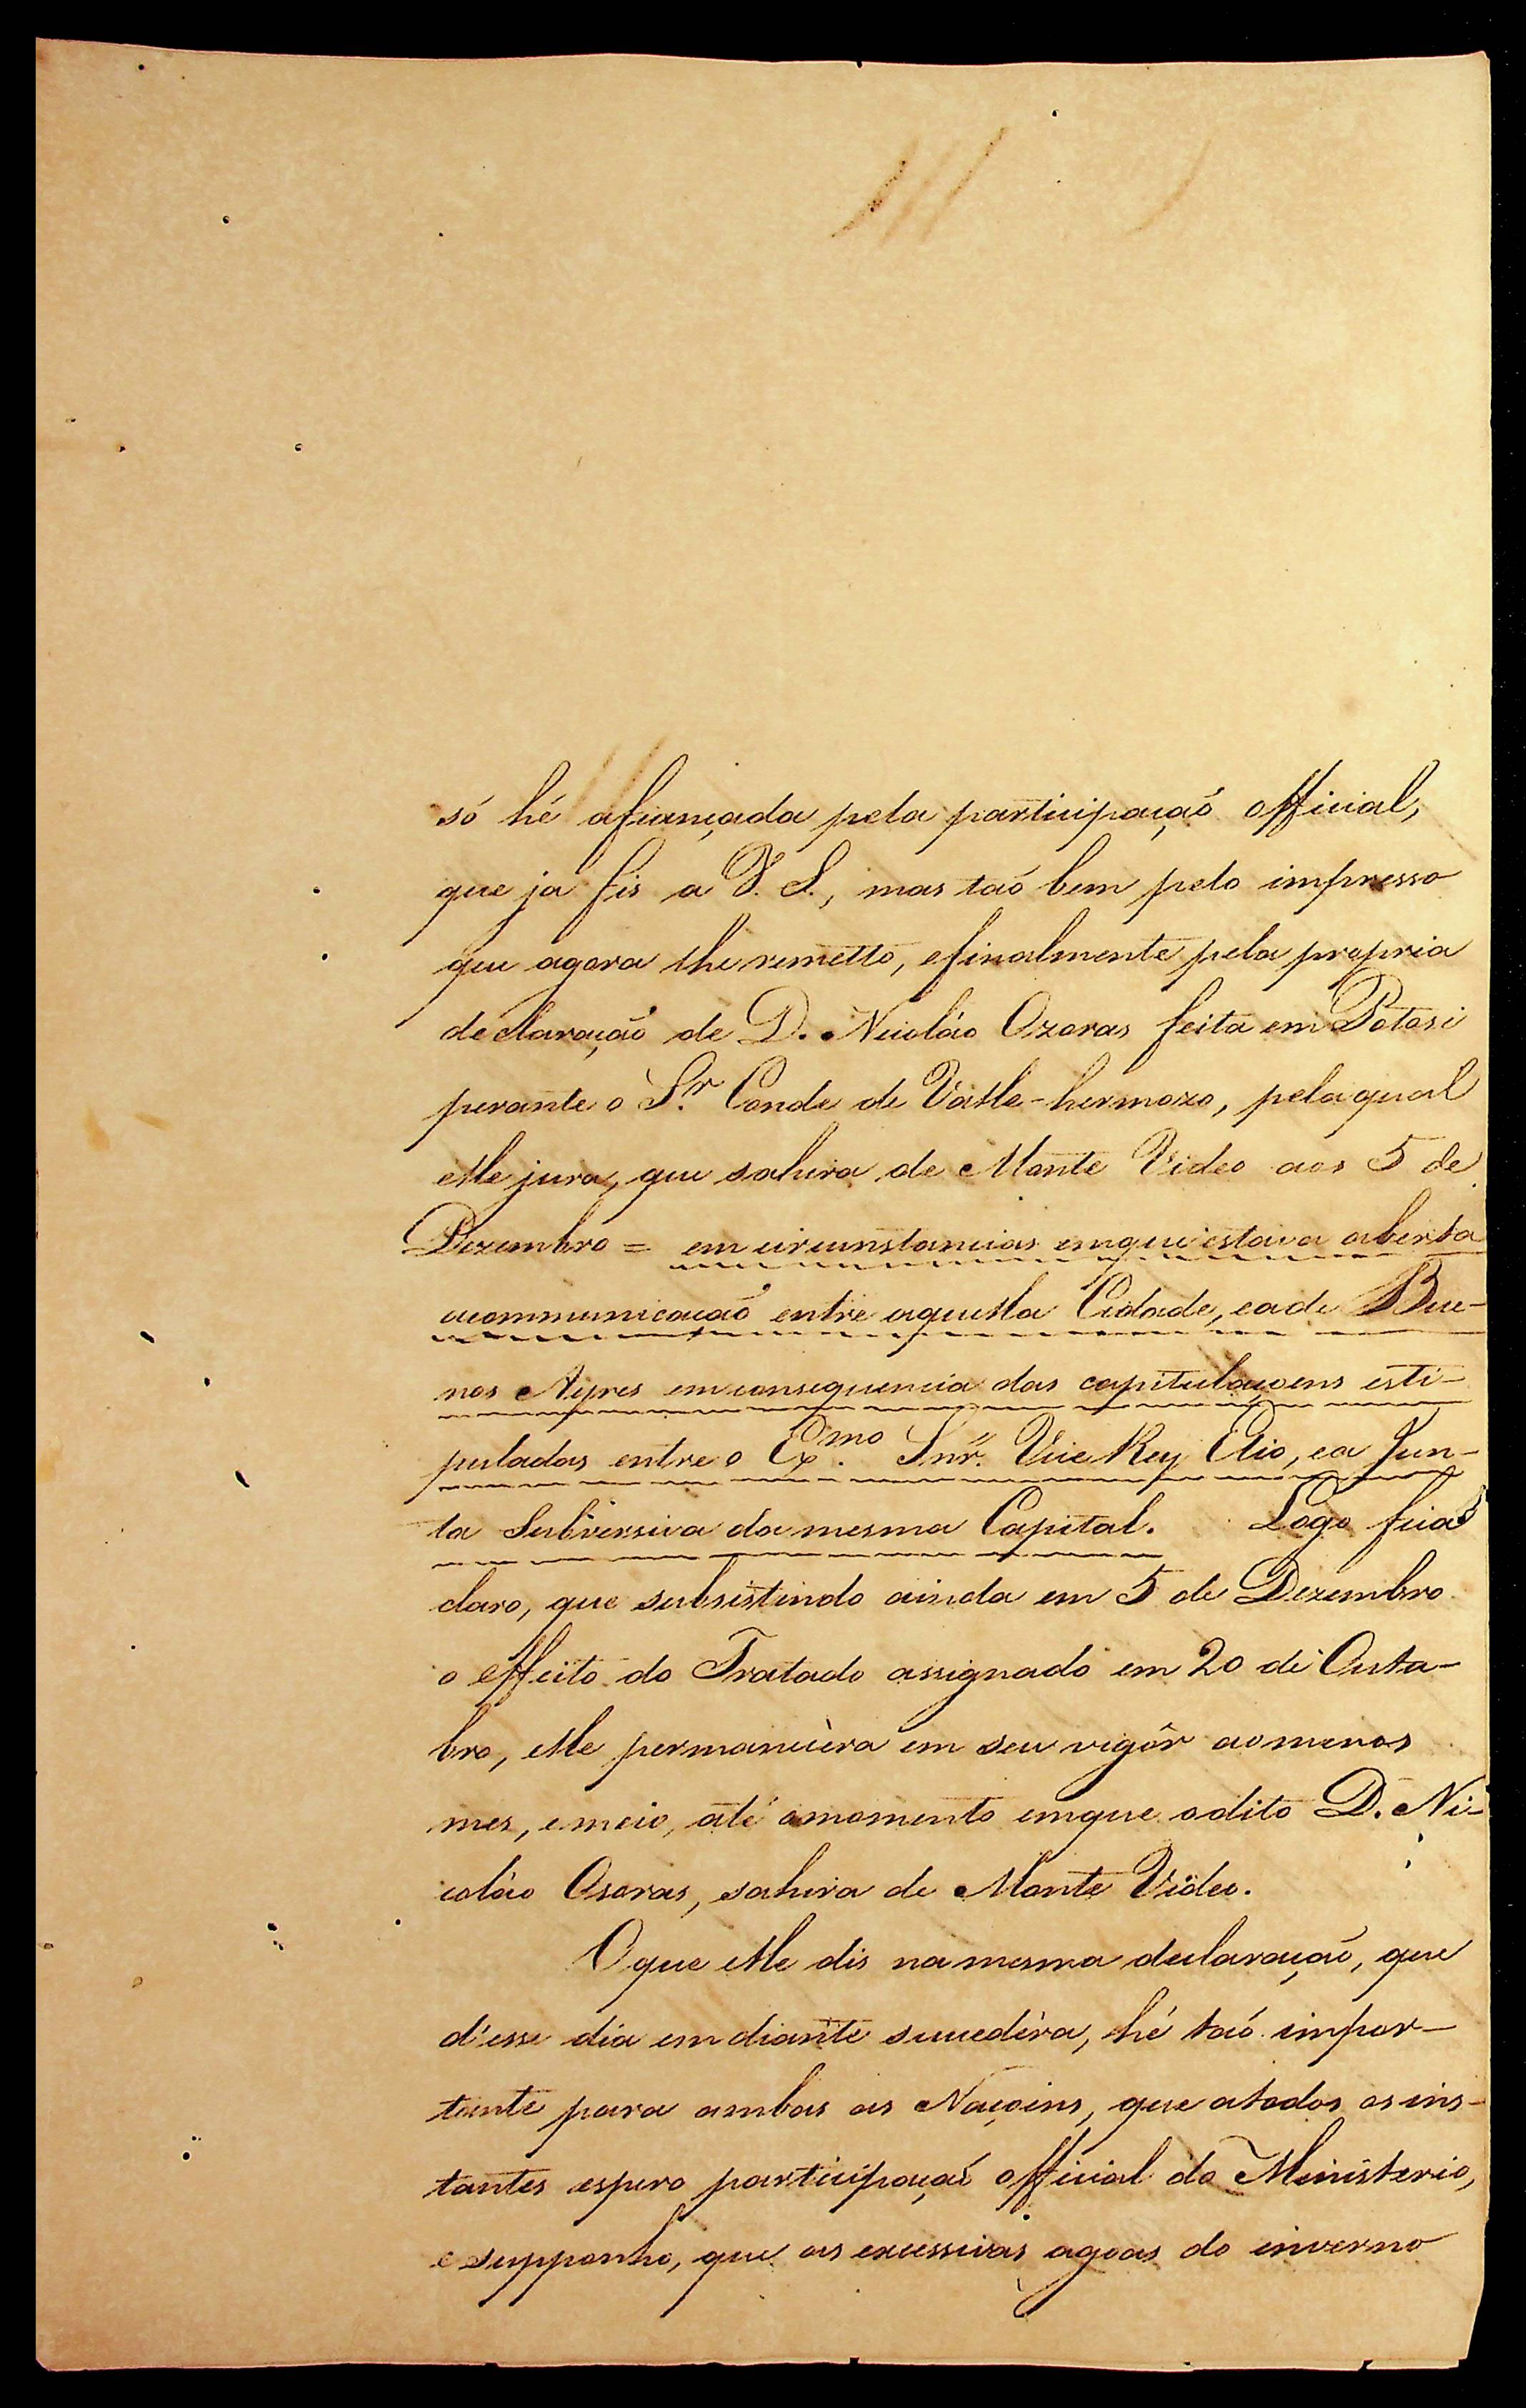 só hé afiançada pela participaçaõ official,
que ja fis a V. S., mas taõ bem pelo impresso
que agora lhe remetto, e finalmente pela propria
declaraçaõ de D. Nicoláo Ozoras feita em Potosi
perante o S.r Conde de Valle-hermozo, pela qual
elle jura, que sahira de Monte Video aos 5 de
Dezembro = em circunstancias emque estava aberta
acommunicaçaõ entre aquella Cidade, eade Bue-
nos Ayres em consequencia das capitulaçoens esti-
puladas entre o Ex.mo Snr. Vice Rey Elio, ea Jun-
ta Subversiva da mesma Capital. Logo fica
claro, que subsistindo ainda em 5 de Dezembro
o effeito do Tratado assignado em 20 de Outu-
bro, elle permanecèra em seu vigôr ao menos
mes, emeio, até omomento emque odito D. Ni-
coláo Osoras, sahira de Monte Video.
O que elle dis na mesma declaraçaõ, que
d'esse dia em diante sucedèra, hé taõ impor-
tante para ambas as Naçoins, que atodos os ins-
tantes espero participaçaõ official do Ministerio,
e supponho, que as excessivas agoas do inverno